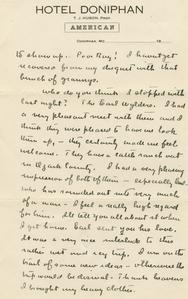 HOTEL DONIPHAN
T. J. HUSON, PROP.
AMERICAN
DONIPHAN, MO. 19
to show up. Poor Roy! I haven't yet
recovered from my disgust with that
bunch of grannys.
Who do you think I stopped with
last night? The Earl Wylders. I had
a very pleasant visit with them and I
think they were pleased to have me look
them up, — they certainly made me feel
welcome. They have a cattle ranch out
in County. I had a very pleasing
impression of both of them — especially Earl
who has rounded out into very much
of a man — I feel a really high regard
for him. I'll tell you all about it when
I get home. Earl sent you his love.
It was a very nice interlude to this
rather wet and very trip. I'm on the
trail of some new ideas — otherwise the
trip would be dismal. Thank heavens
I brought my heavy clothes.